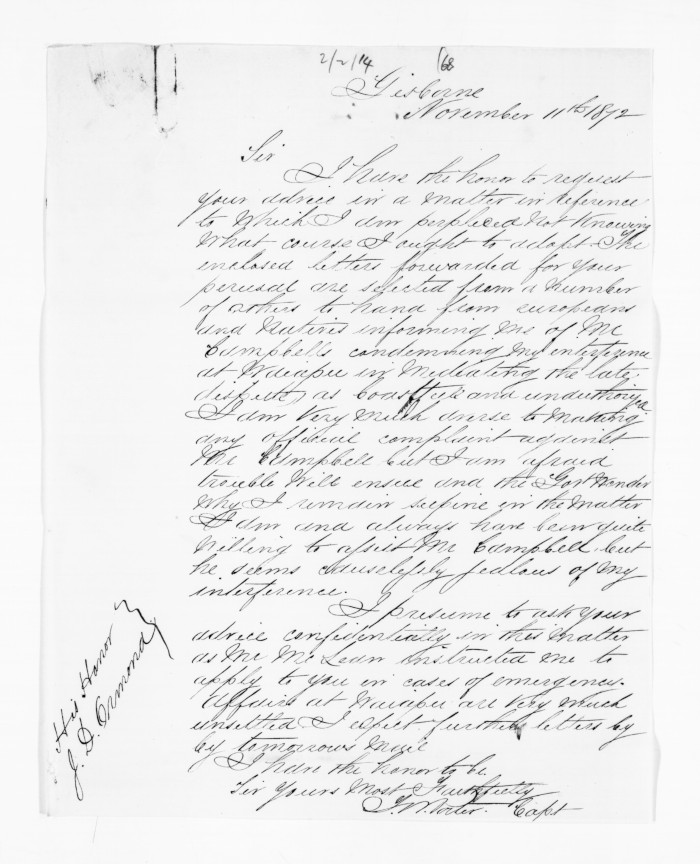 2/2/14 168
Gisborne
November 11th 1872
Sir
I have the honor to request
your advice in a matter in reference
to which I am perplexed not knowing
what course I ought to adopt. The
enclosed letters forwarded for your
perusal are selected from a number
of others to hand from europeans
and Natives informing me of Mr
Campbells condemning my interference
at Waiapu in mediating the late
dispute as and unauthorized
I am very much averse to making
any official complaint against
Mr Campbell but I am afraid
trouble will ensue and the Govt wonder
why I remain supine in the matter
I am and always have been quite
willing to assist Mr Campbell but
he seems causelessly jealous of my
interference.
I presume to ask your
advice confidentially in this matter
as Mr McLean instructed me to
apply to you in cases of emergency.
Affairs at Waiapu are very much
unsettled I expect further letters by
by tomorrows mail
I have the honor to be
Sir Yours Most Faithfully
Porter Capt
His Honor
J. D. Ormond